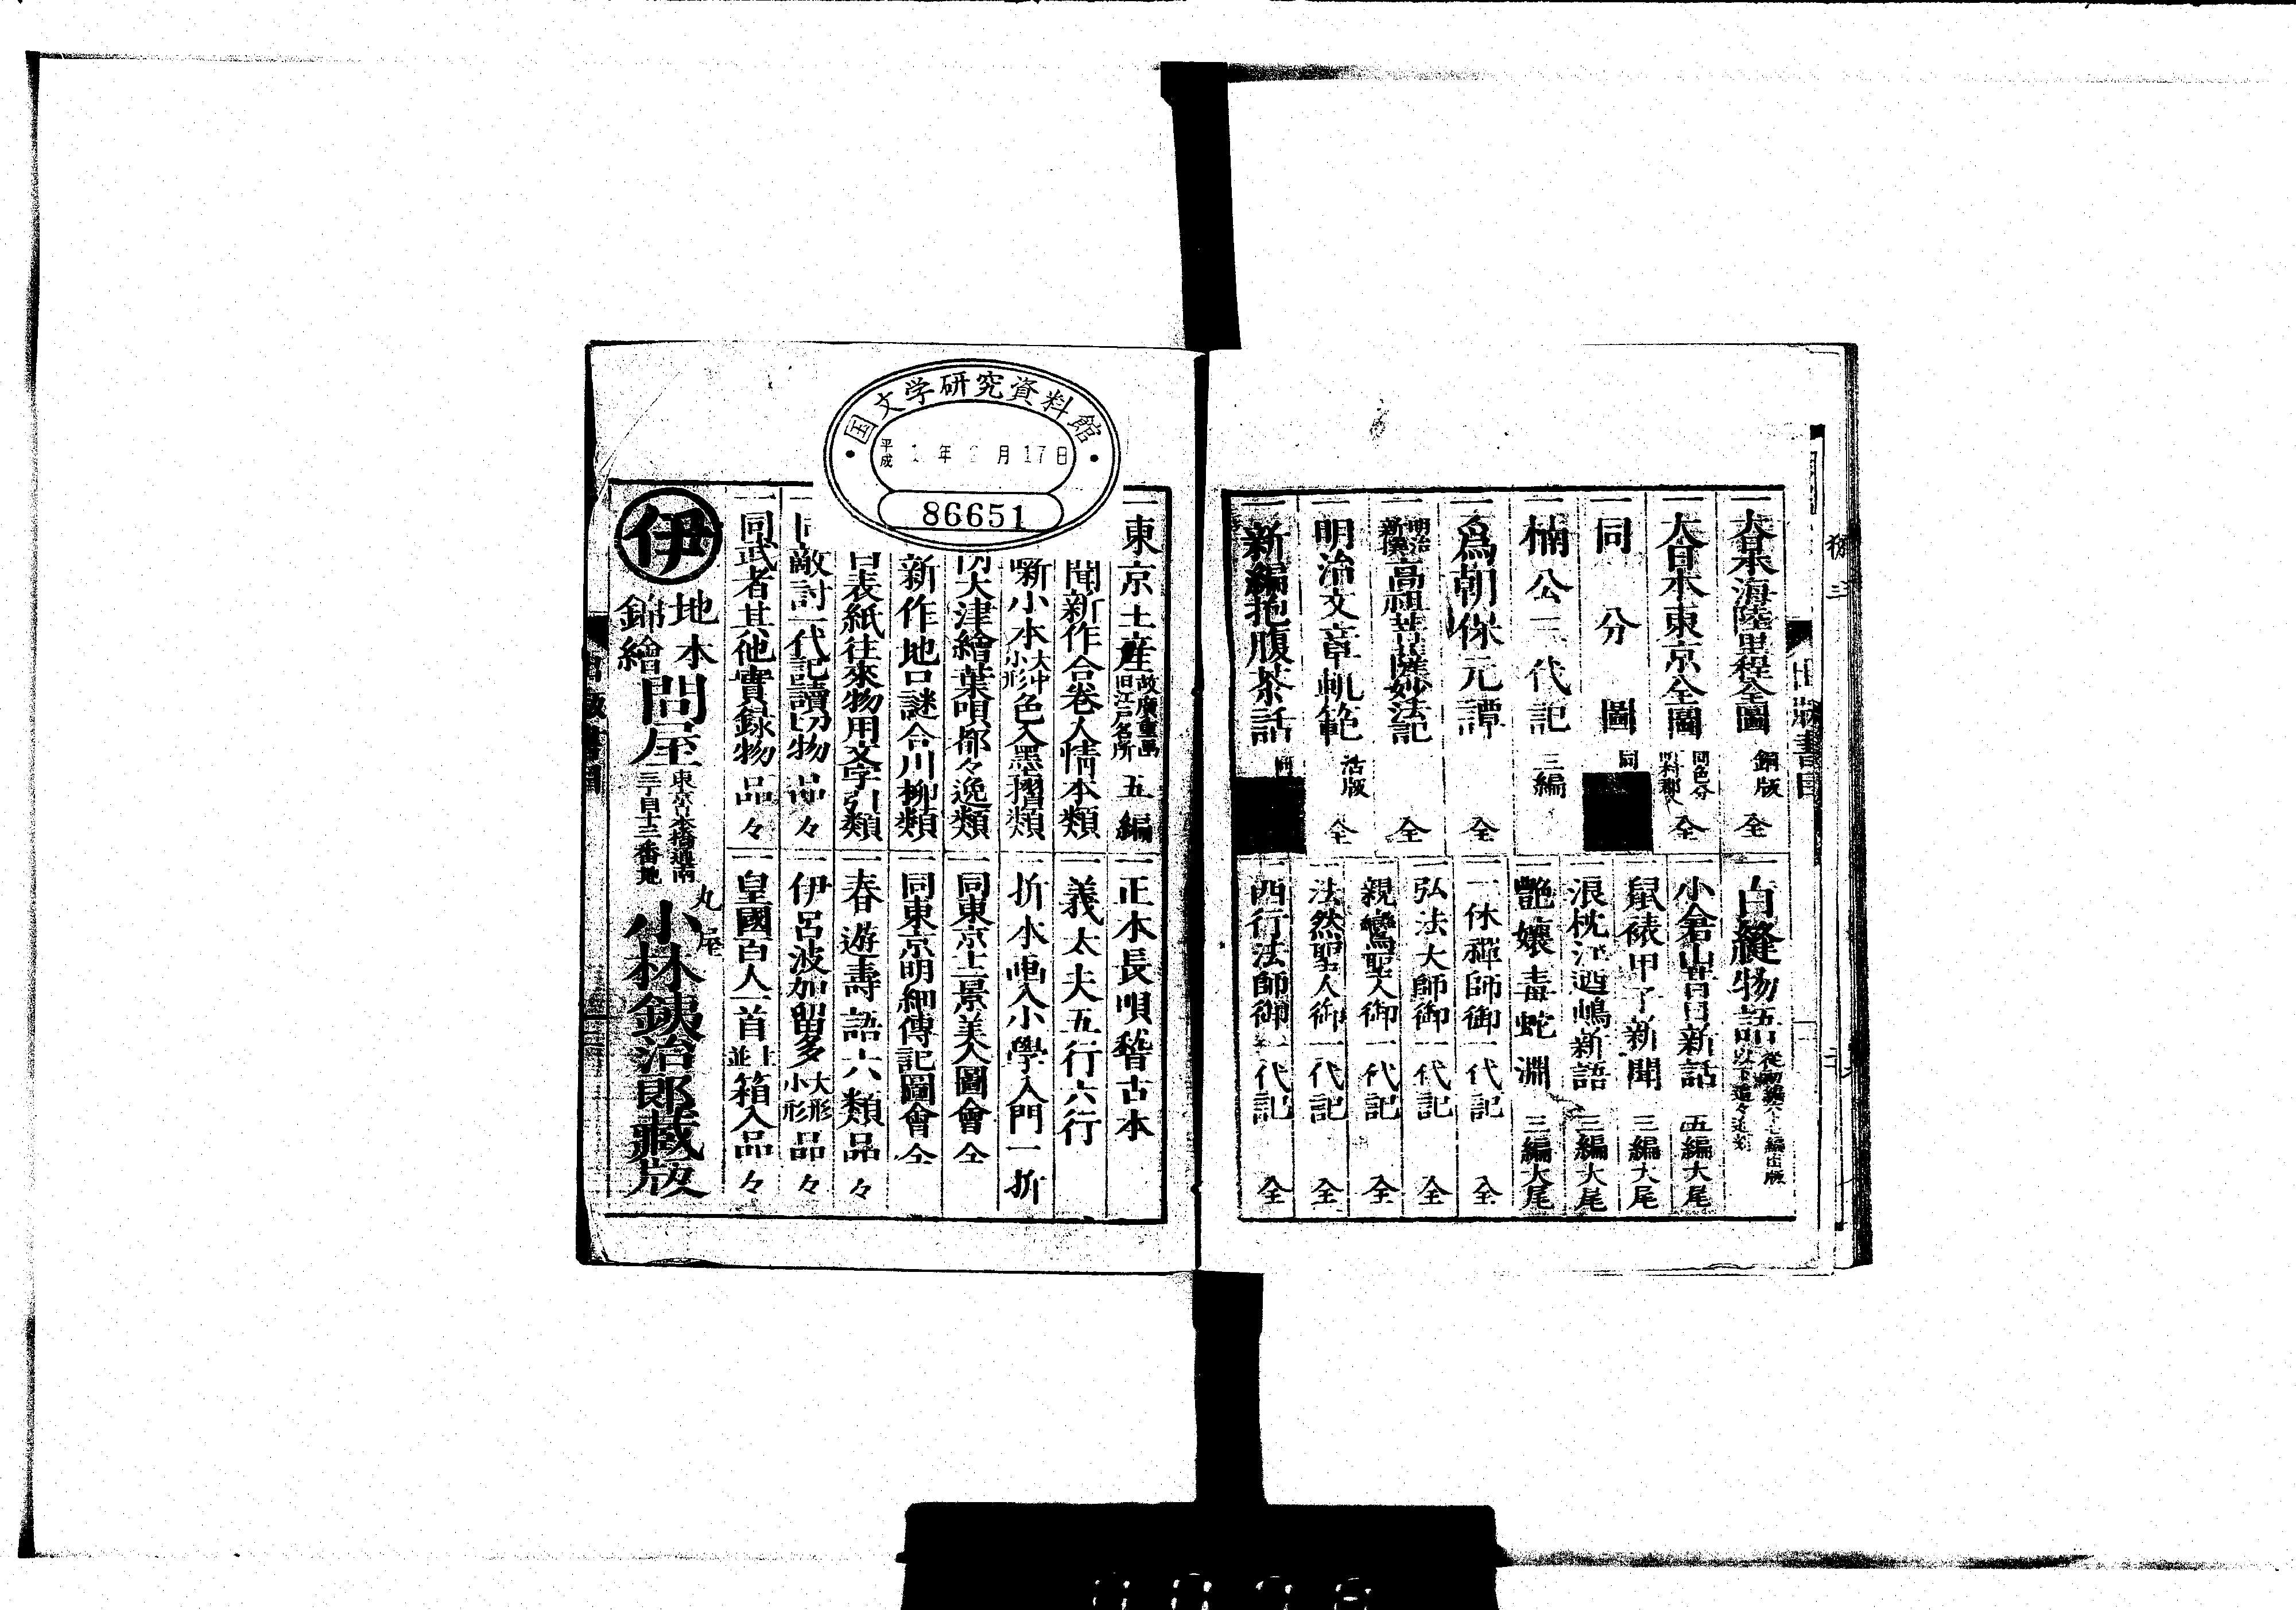 出版書目
一大日本海陸里程全圖 銅版 全
一大日本東京全圖 同色分 全
一同分圖 同
一楠公三代記 三編
一爲朝保元譚 全
一明治新撰高祖菩薩妙法記 全
一明治文章軌範 活版 全
一新編抱腹茶話
一白縫物語
一小倉山昔日新話 五編大尾
一鼠裱甲子新聞 三編大尾
一浪枕江逎嶋新語 三編大尾
一艶孃毒蛇淵 三編大尾
一一休禪師御一代記 全
一弘法大師御一代記 全
一親鸞聖人御一代記 全
一法然聖人御一代記 全
一西行法師御一代記 全
国文学研究資料館
平成 年 月17日
86651
一東京土産 故廣重画 旧江戸名所 五編
聞新作合巻人情本類
噺小本 大中小形 色入墨摺類
大津繪葉唄都々逸類
新作地口謎合川柳類
表紙往來物用文字引類
敵討一代記讀切物 品々
一同武者其他實録物 品々
一正本長唄稽古本
一義太夫五行六行
一折本画入小學入門 一折
一同東京十二景美人圖會 全
一同東京明細傳記圖會 全
一春遊壽語六類 品々
一伊呂波加留多 大形小形 品々
一皇國百人一首 上並 箱入品々
伊
地本
錦繪
問屋
東京日本橋通南
三丁目十三番地
丸屋
小林鉄治郎藏版
出版書目